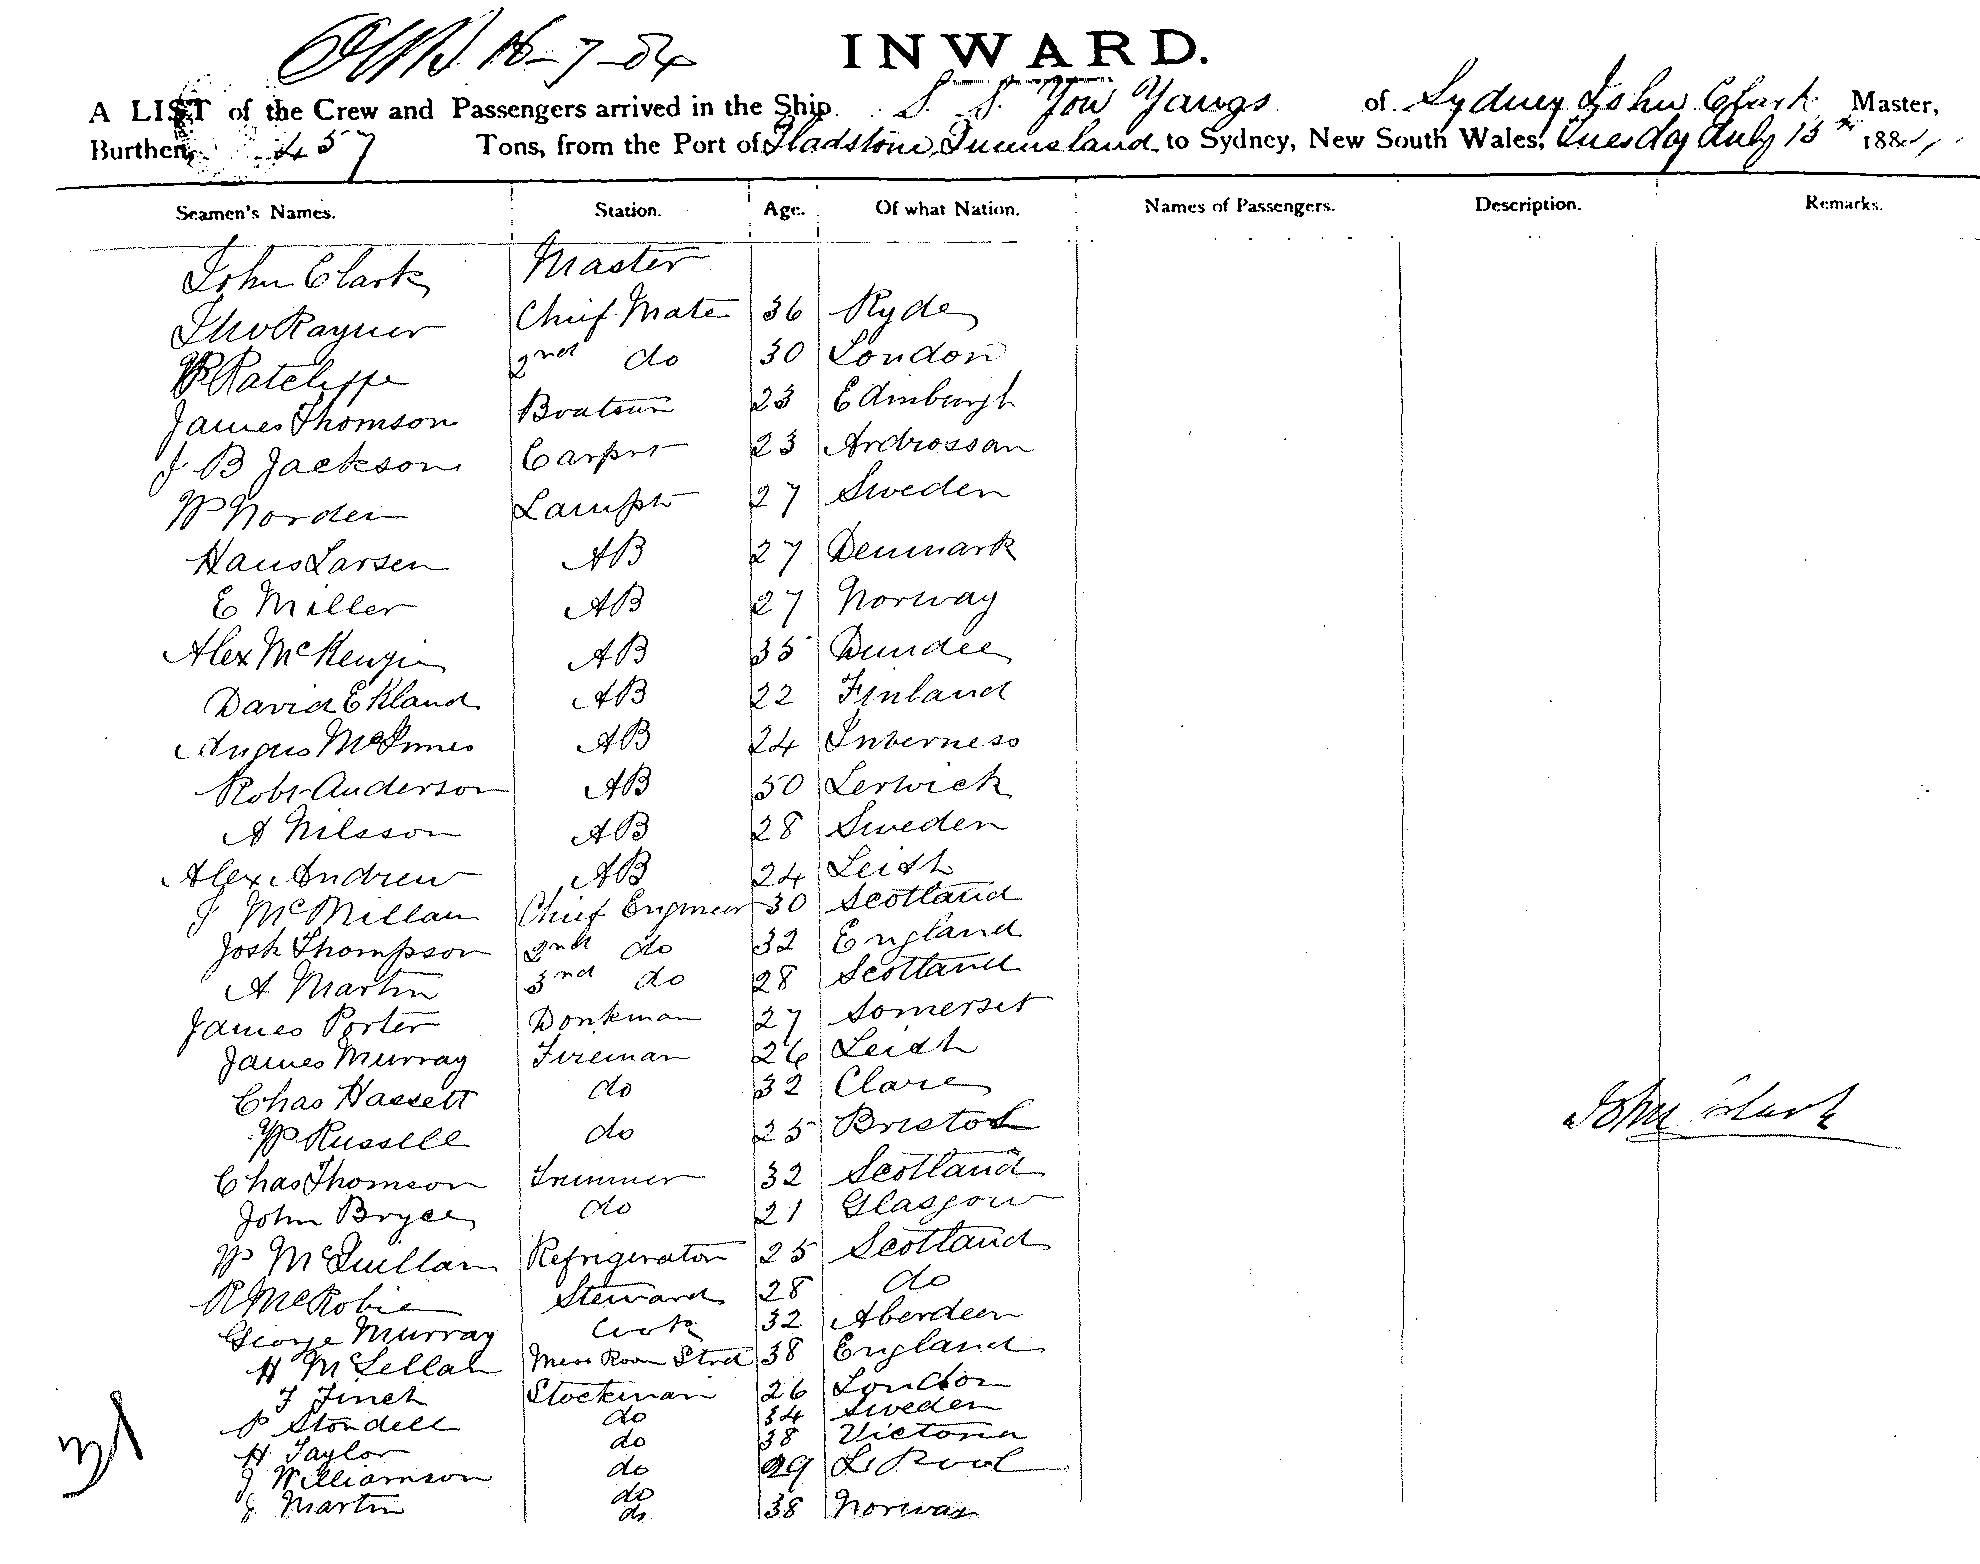 16-7-84
INWARD.
A LIST of the Crew and Passengers arrived in the Ship S. S. You Yangs of Sydney John Clark Master,
Burthen, 457 Tons, from the Port of Gladstone Queensland to Sydney, New South Wales, Tuesday July 15th 1884
Seamen's Names. Station. Age. Of what Nation. Names of Passengers. Description. Remarks.
John Clark Master
Tho Rayner Chief Mate 36 Ryde
W Ratcliffe 2nd do 30 London
James Thomson Boatsun 23 Edinburgh
J B Jackson Carpnr 23 Ardrossan
W Norden Lamptr 27 Sweden
Hans Larsen AB 27 Denmark
E Miller AB 27 Norway
Alex McKenzie AB 35 Dundee
David Ekland AB 22 Finland
Angus McInnes AB 24 Inverness
Robt Anderson AB 50 Lerwick
A Nilsson AB 28 Sweden
Alex Andrew AB 24 Leith
J McMillan Chief Engineer 30 Scotland
Josh Thompson 2nd do 32 England
A Martin 3nd do 28 Scotland
James Porter Donkman 27 Somerset
James Murray Fireman 26 Leith
Chas Hassett do 32 Clare
W Russell do 25 Bristol
Chas Thomson Trimmer 32 Scotland
John Bryce do 21 Glasgow
W McQuillan Refrigerator 25 Scotland
R McRobie Steward 28 do
George Murray Cook 32 Aberdeen
H McLellan Mess Room Strd 38 England
F Finch Stockman 26 London
P Stondell do 34 Sweden
H Taylor do 38 Victoria
J Williamson do 29 L Pool
J Martin do 38 Norway
do
John Clark
31